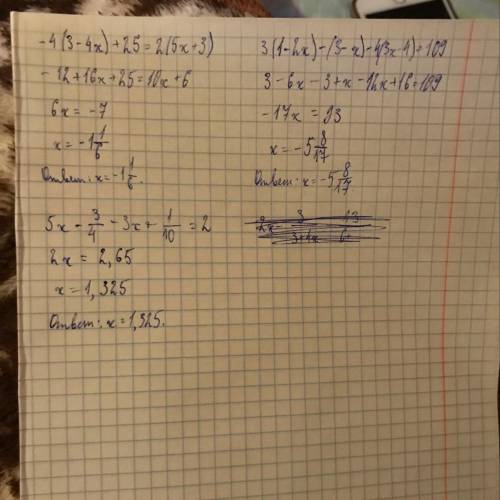 -4(3-4x)+25=2(5x+3)
-12+16x+25=10x+6
6x=-7
x=-1 1/6
Ответ: x=-1 1/6.
3(1-2x)-(3-x)-4(3x-4)=109
3-6x-3+x-12x+16=109
-17x=93
x=-5 8/17
Ответ: x=-5 8/17.
5x-3/4-3x+1/10=2
2x=2,65
x=1,325
Ответ: x=1,325.